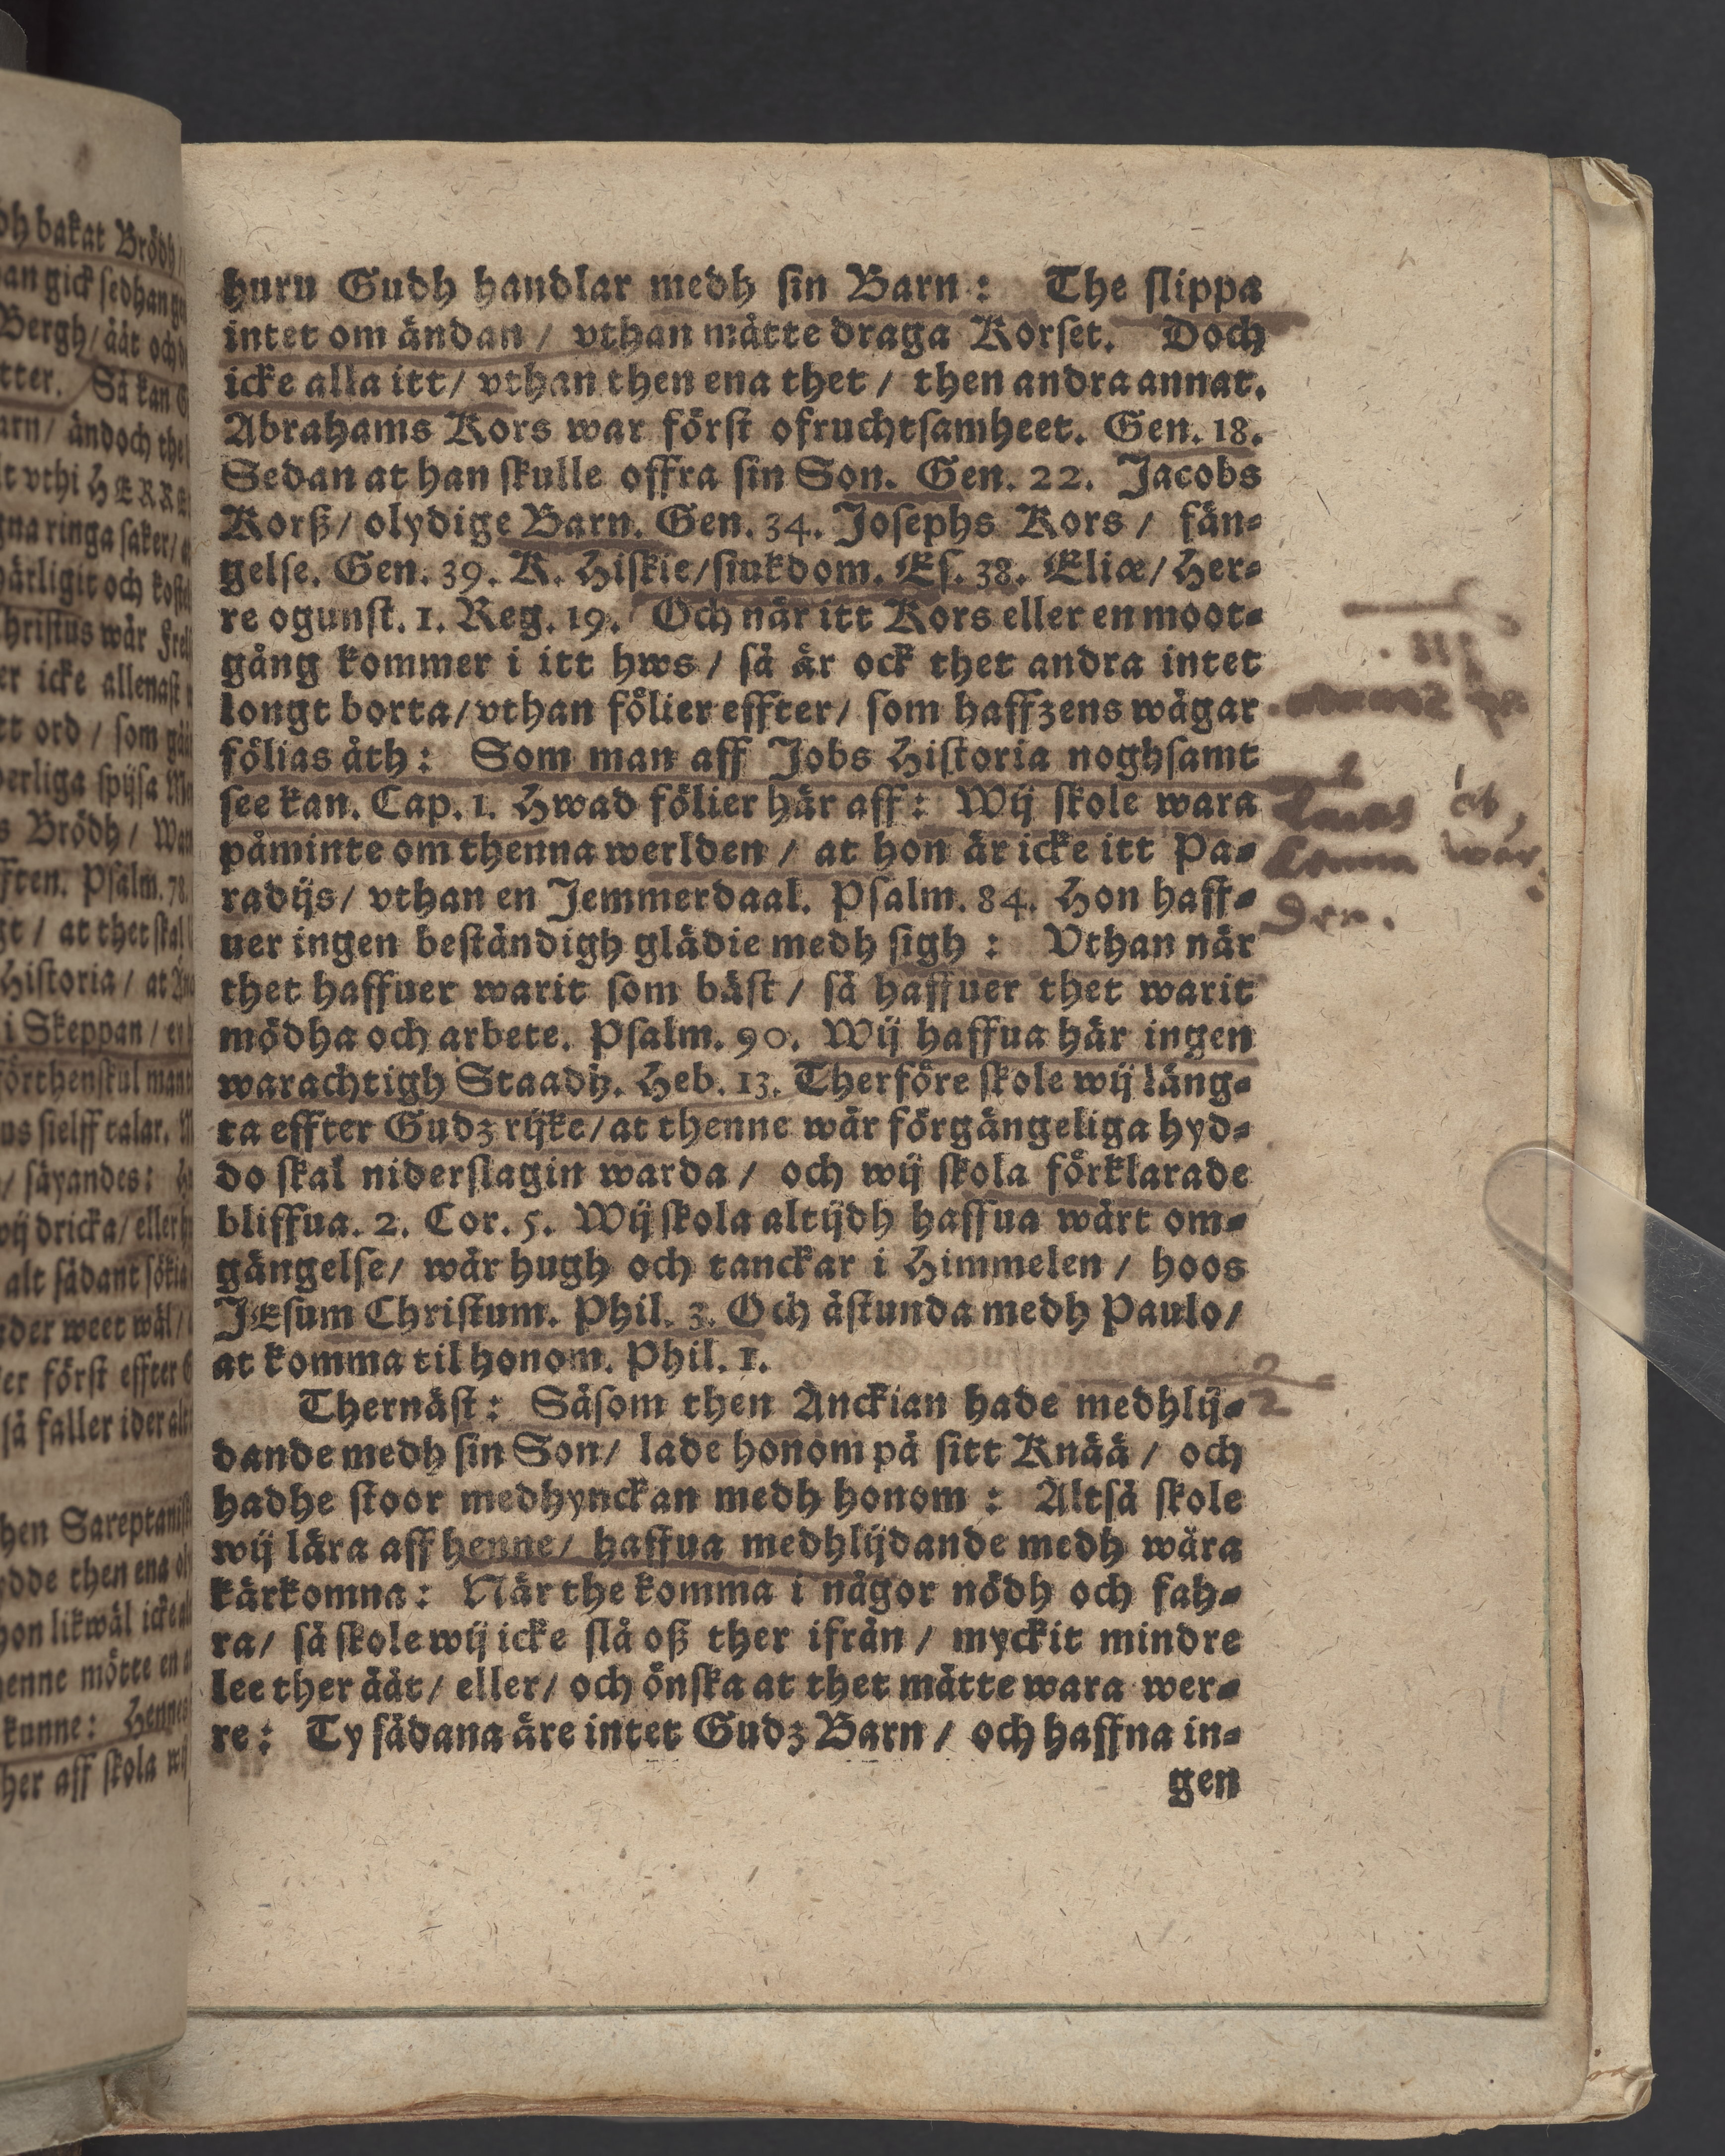 huru Gudh handlar medh sin Barn: The slippa
intet om ändan / vthan måtte draga Korset. Doch
icke alla itt / vthan then ena thet / then andra annat.
Abrahams Kors war först ofruchtsamheet. Gen. 18.
Sedan at han skulle offra sin Son. Gen. 22. Jacobs
Korß / olydige Barn. Gen. 34. Josephs Kors / fän-
gelse. Gen. 39. K. Hiskie / siukdom. Es. 38. Eliæ / Her-
re ogunst. 1. Reg. 19. Och när itt Kors eller en moot-
gång kommer i itt hws / så är ock thet andra intet
longt borta / vthan fölier effter / som haffzens wågar
fölias åth: Som man aff Jobs Historia noghsamt
see kan. Cap. 1. Hwad fölier här aff: Wij skole wara
påminte om thenna werlden / at hon är icke itt Pa-
radijs / vthan en Jemmerdaal. Psalm. 84. Hon haff-
uer ingen beständigh glädie medh sigh: Vthan när
thet haffuer warit som bäst / så haffuer thet warit
mödha och arbete. Psalm. 90. Wij haffua här ingen
warachtigh Staadh. Heb. 13. Therföre skole wij läng-
ta effter Gudz rijke / at thenne wår förgängeliga hyd-
do skal niderslagin warda / och wij skola förklarade
bliffua. 2. Cor. 5. Wij skola altijdh haffua wårt om-
gängelse / wår hugh och tanckar i Himmelen / hoos
JEsum Christum. Phil. 3. Och åstunda medh Paulo /
at komma til honom. Phil. 1.
Thernäst: Såsom then Änckian hade medhlij-
dande medh sin Son / lade honom på sitt Knää / och
hadhe stoor medhynckan medh honom: Altså skole
wij lära aff henne / haffua medhlijdande medh wåra
kärkomna: När the komma i någor nödh och fah-
ra / så skole wij icke slå oß ther ifrån / myckit mindre
lee ther äät / eller / och önska at thet måtte wara wer-
re: Ty sådana äre intet Gudz Barn / och haffna in-
gen